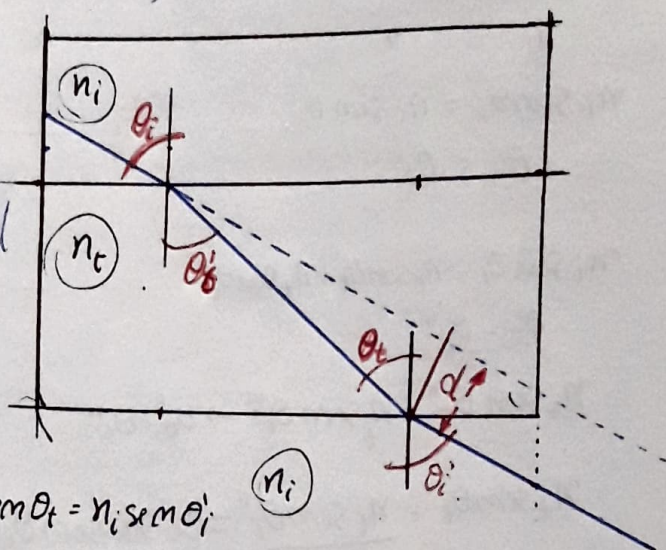 nᵢ
θᵢ
nₜ
θₜ'
θₜ
d
θᵢ'
nᵢ
senθₜ = nᵢ senθᵢ'